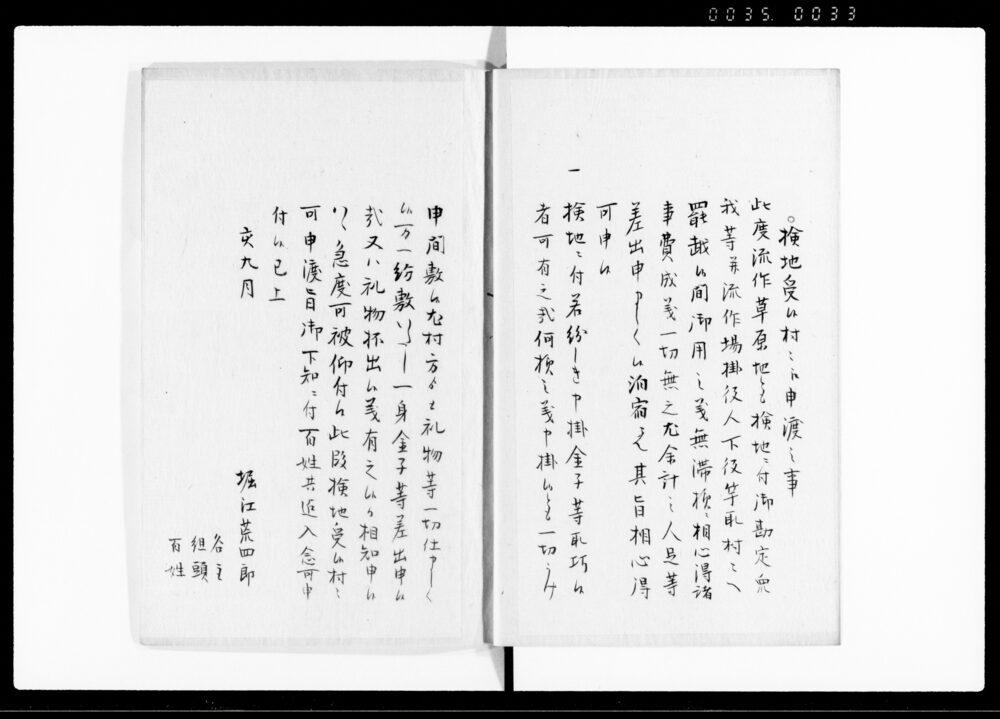 0035. 0033
。検地受候村々江申渡之事
此度流作草原地とも検地ニ付御勘定衆
我等并流作場掛役人下役竿取村々へ
罷越候間御用之義無滞様ニ相心得諸
事費成義一切無之尤余計之人足等
差出申ましく候泊宿も其旨相心得
可申候
一
検地ニ付若紛しき申掛金子等取巧候
者可有之哉何様之義申掛候とも一切
申間敷候尤村方より礼物等一切仕ましく
候万一紛敷 一身金子等差出申候
哉又ハ礼物抔出候義有之候ハヽ相知申候
ハヽ急度可被仰付候此段検地受候村々
可申渡旨御下知ニ付百姓共迄入念可申
付候已上
亥九月
堀江荒四郎
名主
組頭
百姓